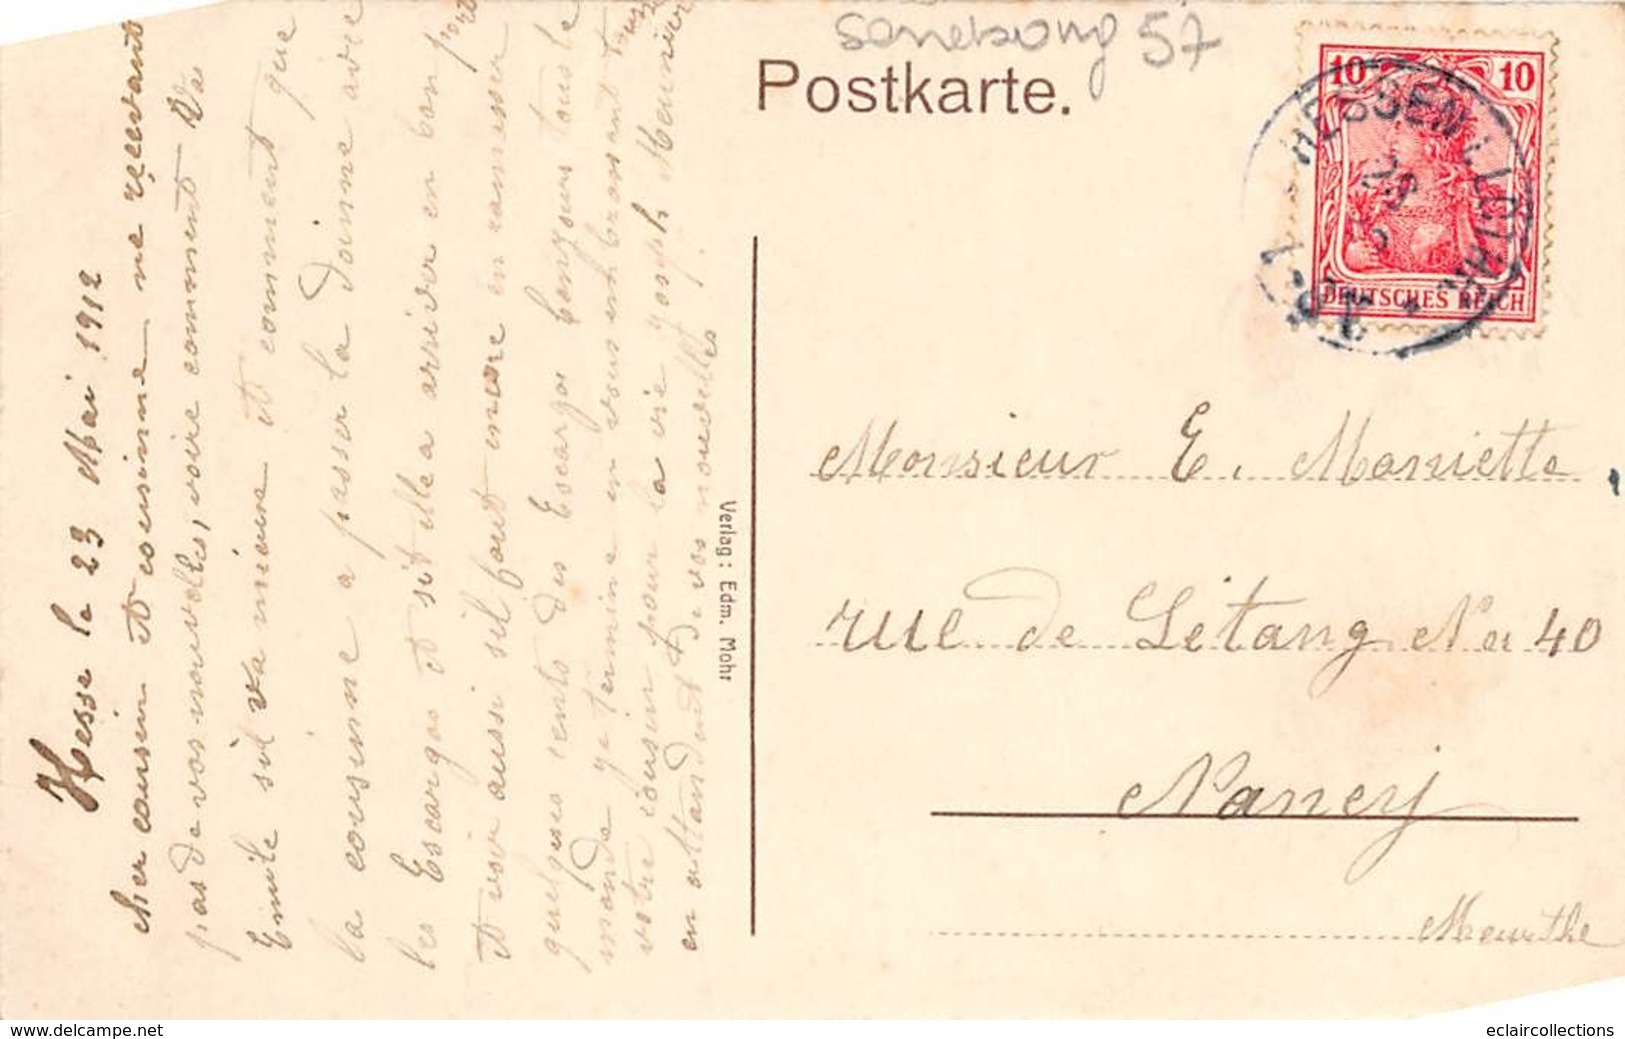 Sarrebourg 57
Postkarte.
10 10
DEUTSCHES REICH
HESSEN i. LOTHR.
Hesse le 23 Mai 1912
cher cousin et cousinne ne recevant
pas de vos nouvelles, voire comment Vas
Emile s'il va mieux et comment que
la cousine a passer la Doinne avre
les Escargo et sit elle a arriver en bon
et voir aussi sil faut encore en ramasser
quelques cents des Escargo bonjour tous le
monde je termine en vous enbrassant tous
votre cousin pour la vie Joseph Meunier
en attandent de vos nouvelles
Verlag: Edm. Mohr
Monsieur E. Maniette
rue de Létang No 40
Nancy
Meurthe
www.delcampe.net
eclaircollections